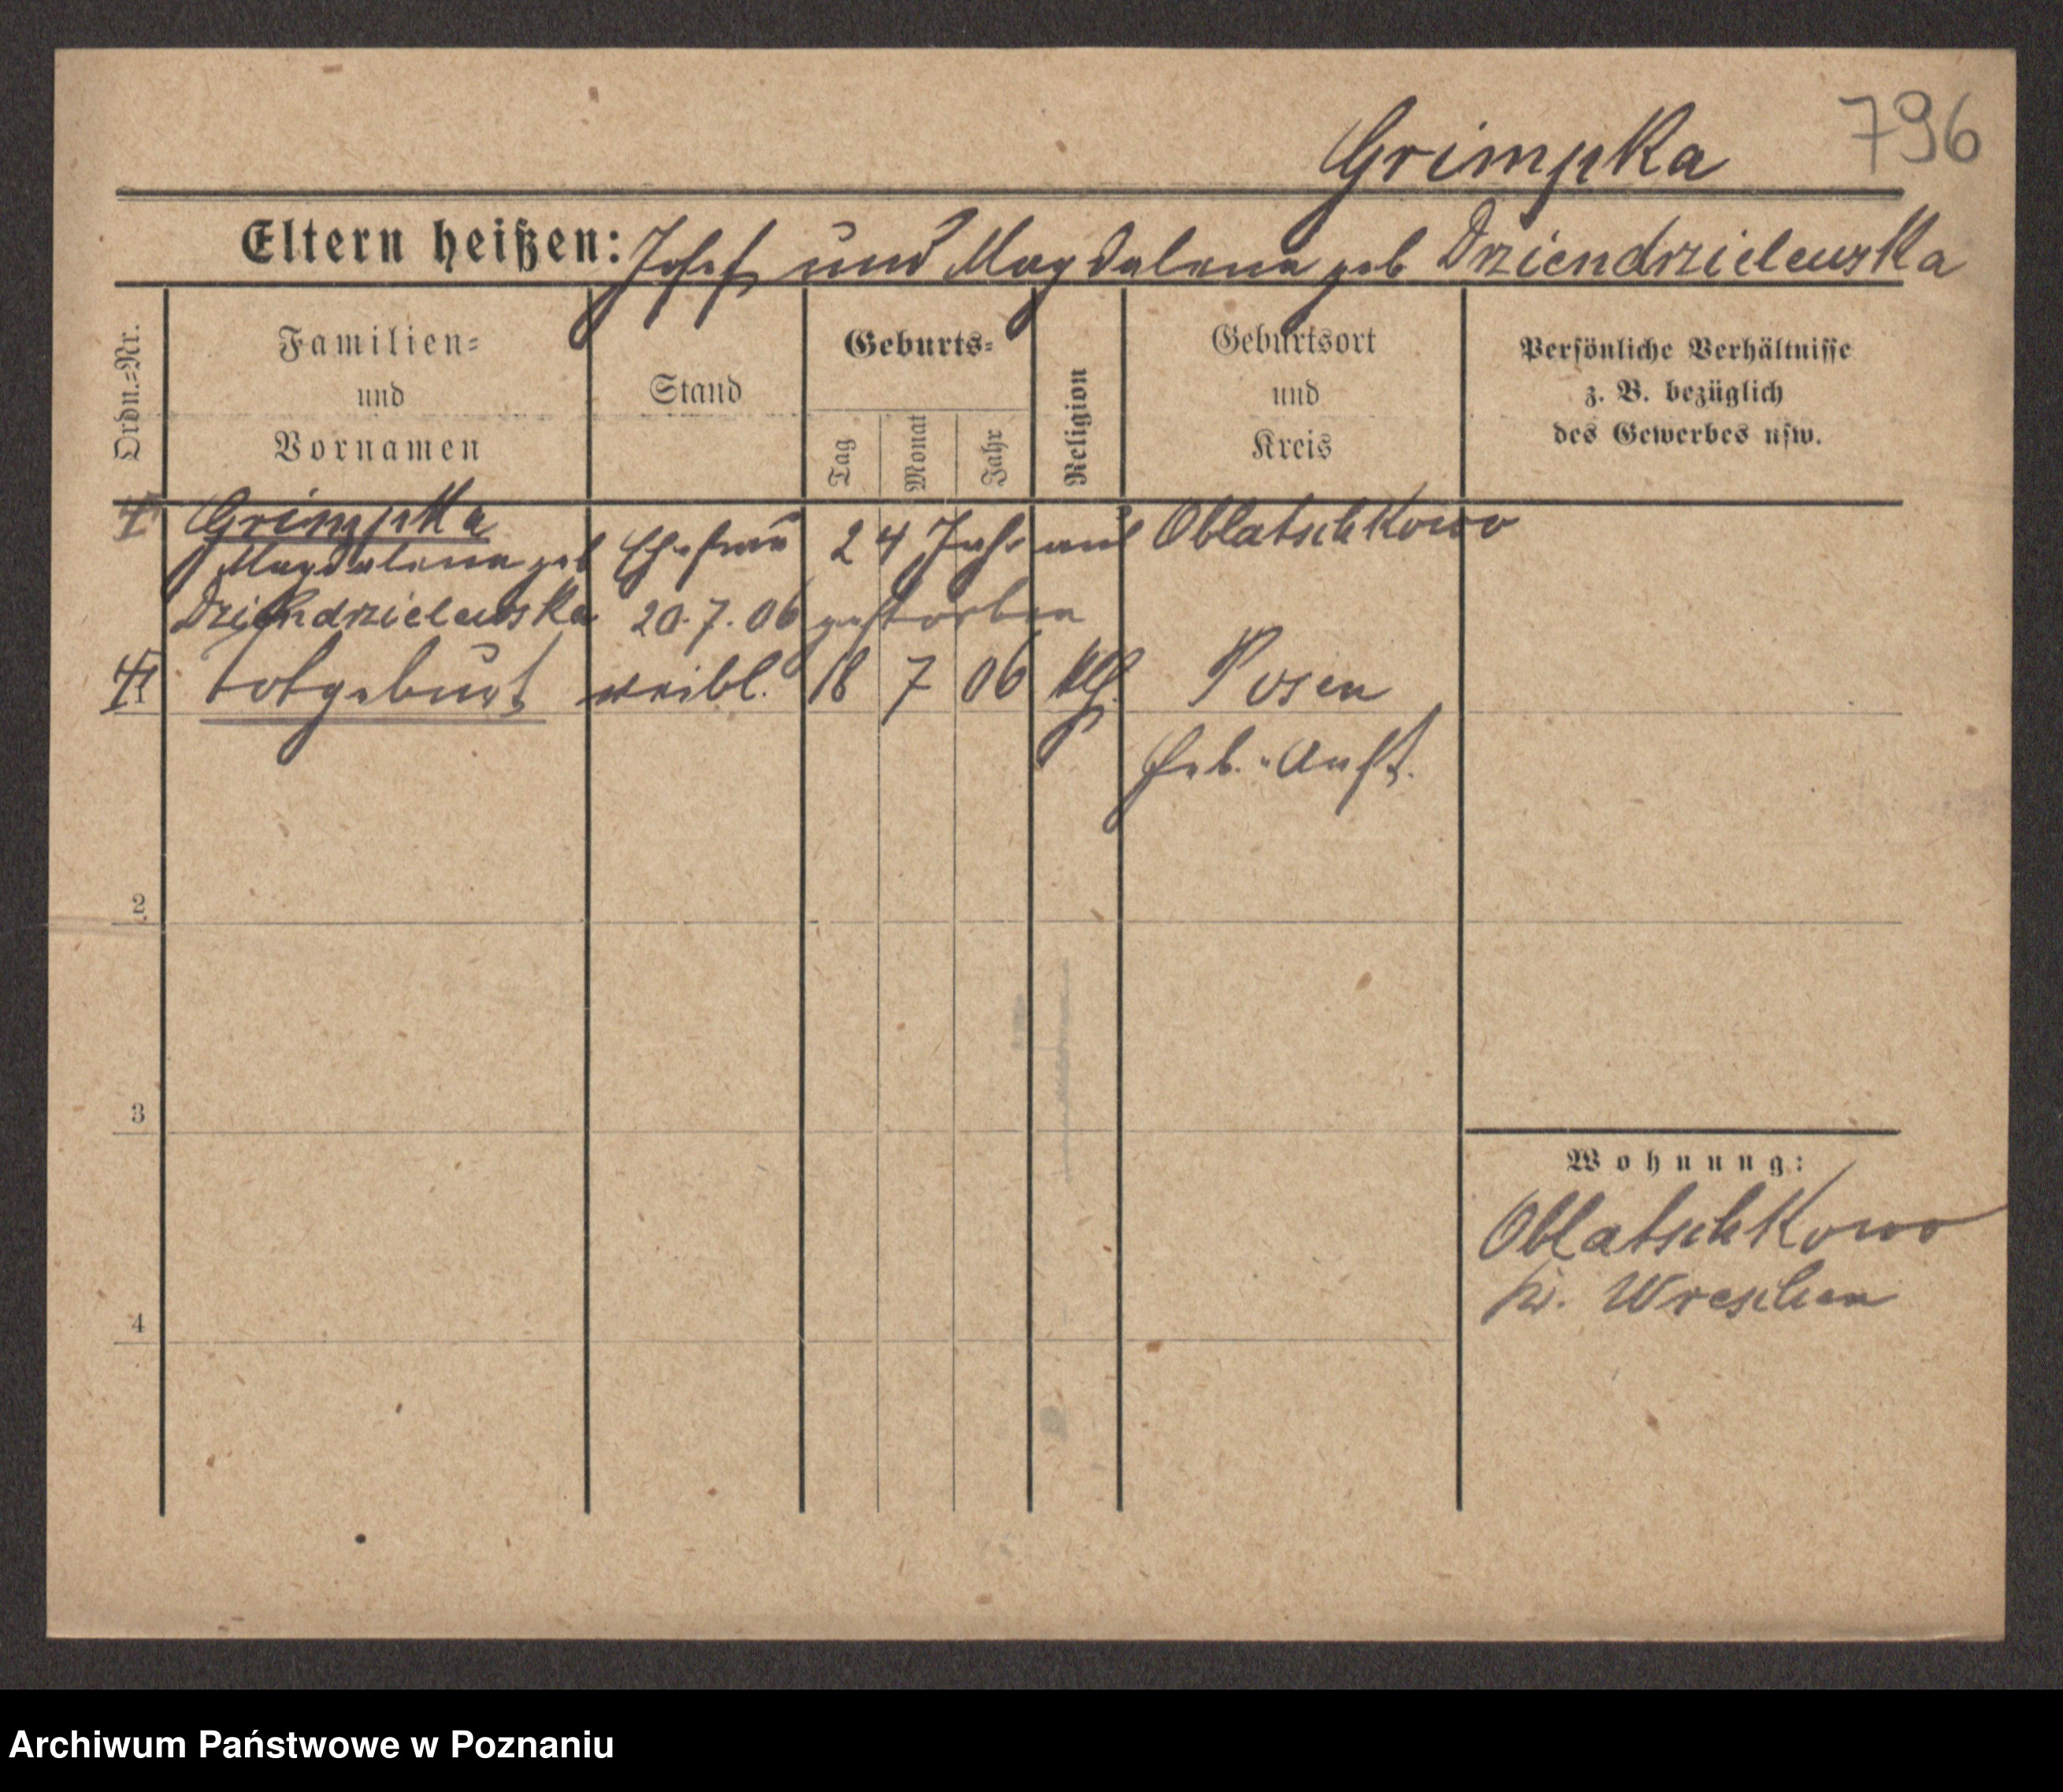 796
Grimpka
Eltern heißen: Josef und Magdalena geb Dziendzielewska
Ordn.=Nr.
Familien=
und
Vornamen
Stand
Geburts=
Tag
Monat
Jahr
Religion
Geburtsort
und
Kreis
Persönliche Verhältnisse
z. B. bezüglich
des Gewerbes usw.
Grimpka
Magdalena geb Ehefrau 24 Jahr aus Oblatschkowo
Dziendzielewska 20.7.06 gestorben
totgeburt weibl. 18 7 06 kth. Posen
Heb.-Anst.
2
3
4
Wohnung:
Oblatschkowo
Kr. Wreschen
Archiwum Państwowe w Poznaniu